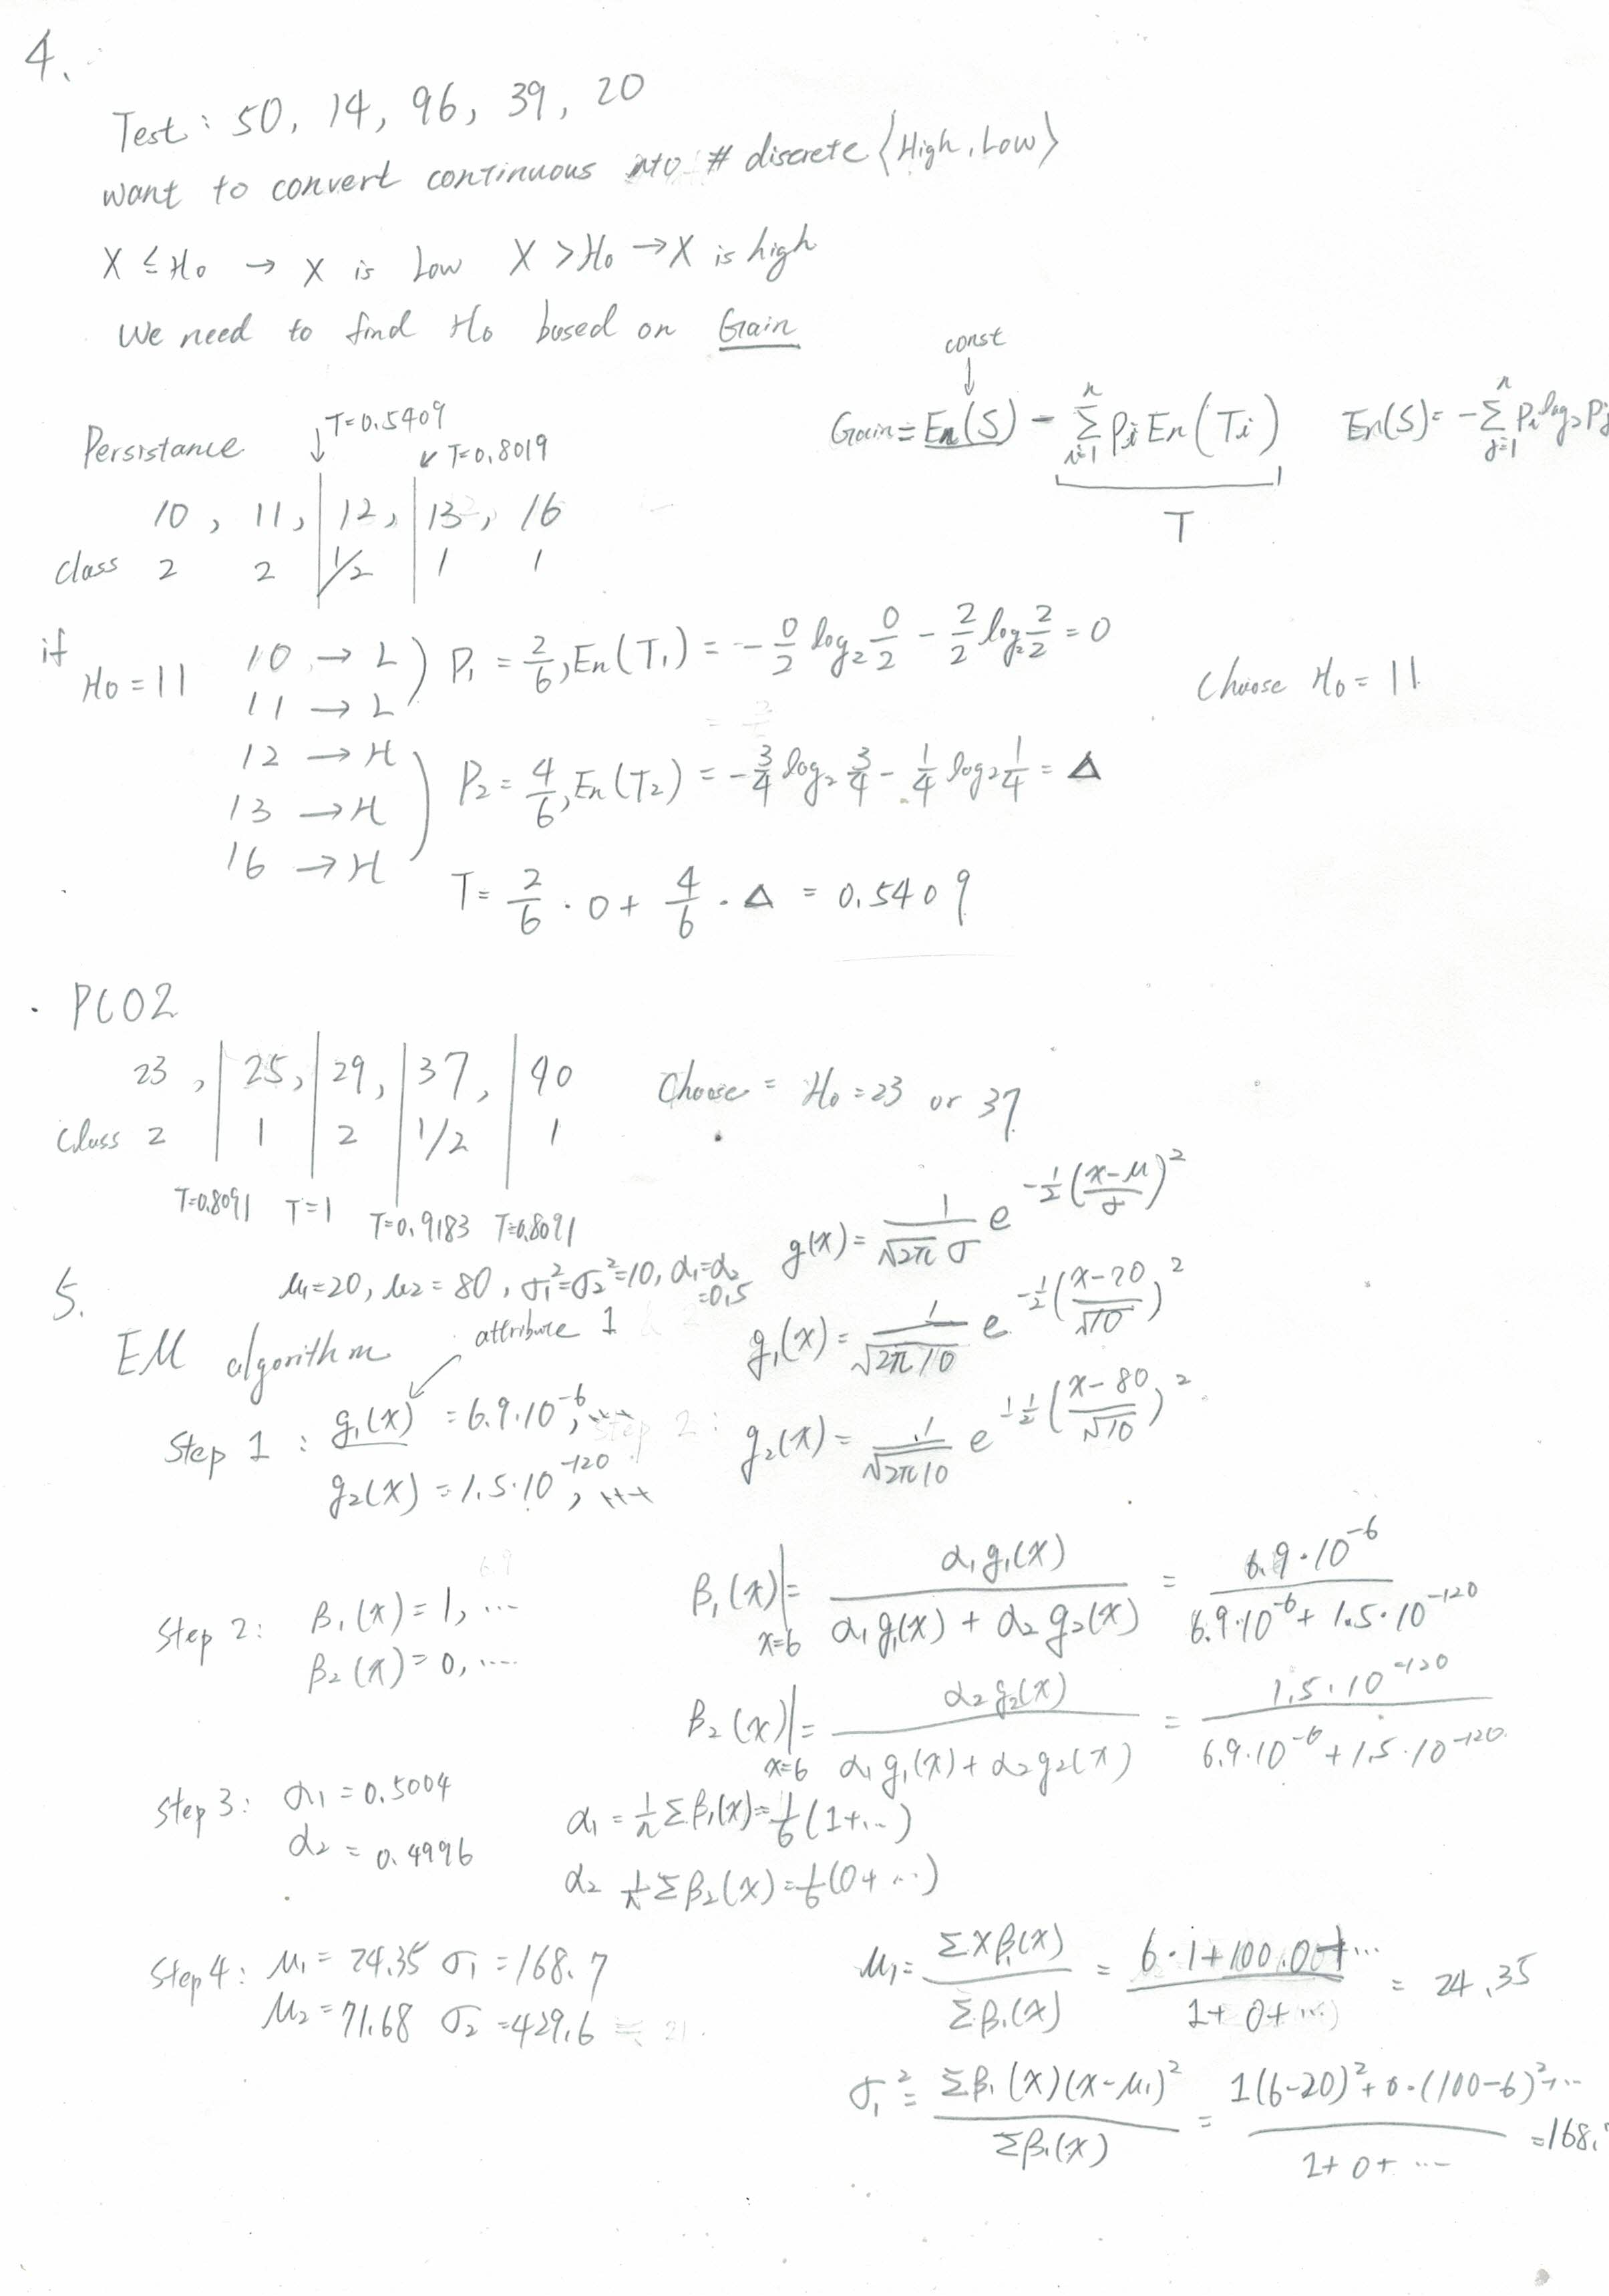 4.
Test: 50, 14, 96, 39, 20
want to convert continuous into # discrete ⟨High, Low⟩
X ≤ H₀ → X is Low X > H₀ → X is high
We need to find H₀ based on Gain
const
↓
Gain = En(S) - Σᵢ₌₁ⁿ Pᵢ En(Tᵢ) En(S) = -Σⱼ₌₁ⁿ Pⱼ log₂ Pⱼ
T
Persistance ↓T=0.5409 ↙T=0.8019
10, 11, | 12, | 13, 16
class 2 2 | 1/2 | 1 1
if H₀ = 11
10 → L
11 → L ) P₁ = 2/6, En(T₁) = - 0/2 log₂ 0/2 - 2/2 log₂ 2/2 = 0
Choose H₀ = 11
12 → H
13 → H
16 → H ) P₂ = 4/6, En(T₂) = - 3/4 log₂ 3/4 - 1/4 log₂ 1/4 = Δ
T = 2/6 · 0 + 4/6 · Δ = 0.5409
· PCO2
23, | 25, | 29, | 37, | 40
class 2 | 1 | 2 | 1/2 | 1
Choose = H₀ = 23 or 37
T=0.8091 T=1 T=0.9183 T=0.8091
5.
μ₁=20, μ₂=80, σ₁²=σ₂²=10, α₁=α₂=0.5
g(x) = 1/(√2π σ) e^(-1/2((x-μ)/σ)²)
EM algorithm
attribute 1
g₁(x) = 1/√2π10 e^(-1/2((x-20)/√10)²)
Step 1: g₁(x) = 6.9·10⁻⁶, ...
g₂(x) = 1.5·10⁻¹²⁰, ...
g₂(x) = 1/√2π10 e^(-1/2((x-80)/√10)²)
Step 2: β₁(x) = 1, ...
β₂(x) = 0, ....
β₁(x)|x=6 = α₁g₁(x)/(α₁g₁(x) + α₂g₂(x)) = 6.9·10⁻⁶/(6.9·10⁻⁶ + 1.5·10⁻¹²⁰)
β₂(x)|x=6 = α₂g₂(x)/(α₁g₁(x) + α₂g₂(x)) = 1.5·10⁻¹²⁰/(6.9·10⁻⁶ + 1.5·10⁻¹²⁰)
Step 3: α₁ = 0.5004
α₂ = 0.4996
α₁ = 1/n Σβ₁(x) = 1/6 (1+...)
α₂ 1/n Σβ₂(x) = 1/6 (0+...)
Step 4: μ₁ = 24.35 σ₁ = 168.7
μ₂ = 71.68 σ₂ = 429.6
μ₁ = Σxβ₁(x)/Σβ₁(x) = (6·1+100·0+...)/(1+0+...) = 24.35
σ₁² = Σβ₁(x)(x-μ₁)²/Σβ₁(x) = (1(6-20)²+0·(100-6)²+...)/(1+0+...) = 168.